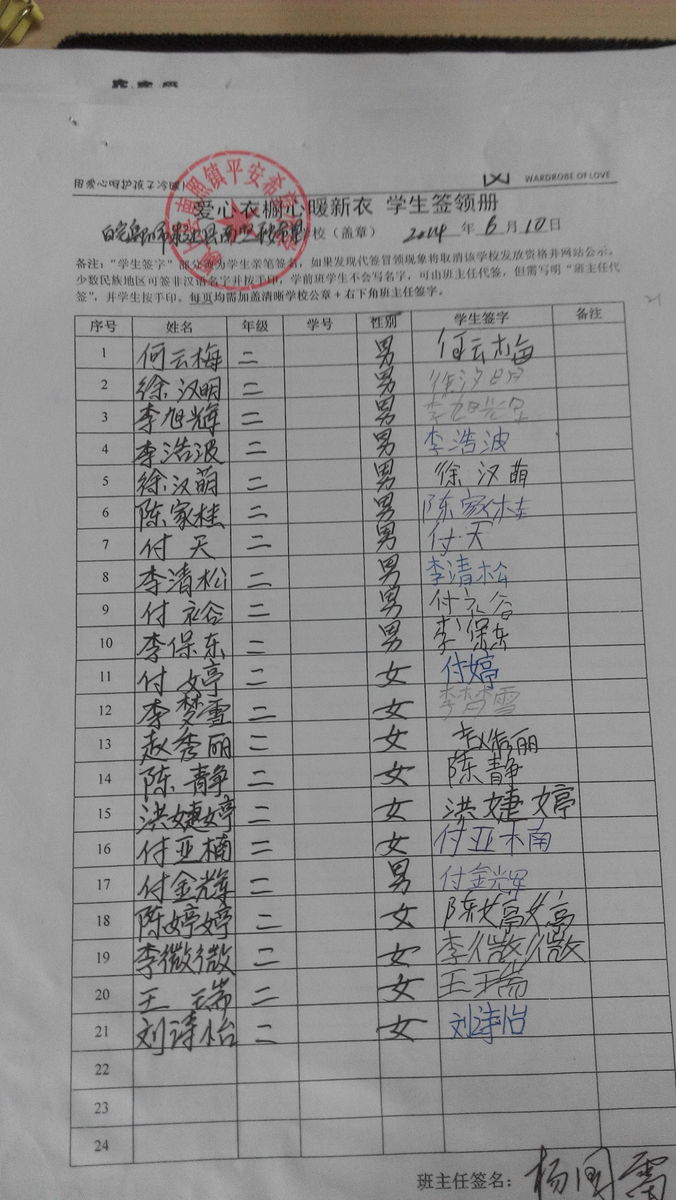 用爱心呵护孩子冷暖
WARDROBE OF LOVE
爱心衣橱心暖新衣 学生签领册
学校（盖章） 2014 年 6 月 10 日
备注：“学生签字”部分须为学生亲笔签名，如果发现代签冒领现象将取消该学校发放资格并网站公示。
少数民族地区可签非汉语名字并按手印，学前班学生不会写名字，可由班主任代签，但需写明“班主任代
签”，并学生按手印。每页均需加盖清晰学校公章+右下角班主任签字。
序号 姓名 年级 学号 性别 学生签字 备注
1 何云梅 二 男 何云梅
2 徐汉明 二 男 徐汉明
3 李旭辉 二 男 李旭辉
4 李浩波 二 男 李浩波
5 徐汉萌 二 男 徐汉萌
6 陈家桂 二 男 陈家桂
7 付天 二 男 付天
8 李清松 二 男 李清松
9 付 二 男 付
10 李保东 二 男 李保东
11 付婷 二 女 付婷
12 李梦雪 二 女 李梦雪
13 赵秀丽 二 女 赵秀丽
14 陈静 二 女 陈静
15 洪婕婷 二 女 洪婕婷
16 付亚楠 二 女 付亚楠
17 付金辉 二 男 付金辉
18 陈婷婷 二 女 陈婷婷
19 李微微 二 女 李微微
20 王瑞 二 女 王瑞
21 刘诗怡 二 女 刘诗怡
22
23
24
班主任签名： 杨